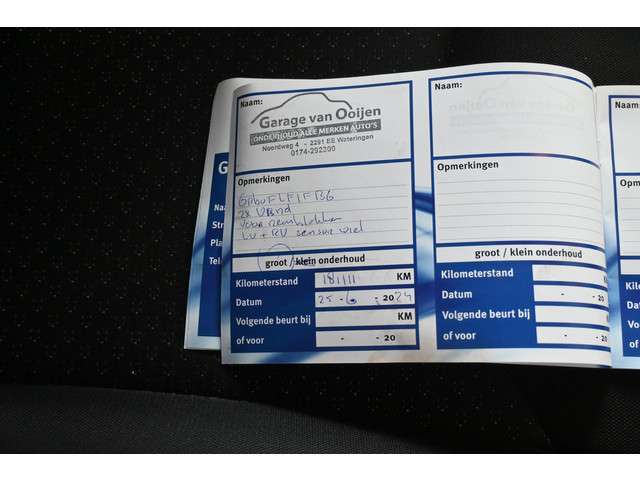 Naam:
Garage van Ooijen
ONDERHOUD ALLE MERKEN AUTO'S
Noordweg 4 - 2291 EB Wateringen
0174-292300
Opmerkingen
2x
voor remblokken
LV + RV sensor wiel
groot / klein onderhoud
Kilometerstand 181111 KM
Datum 25-6-2024
Volgende beurt bij KM
of voor - - 20
Naam:
Opmerkingen
groot / klein onderhoud
Kilometerstand
Datum - - 20
Volgende beurt bij
of voor - - 20